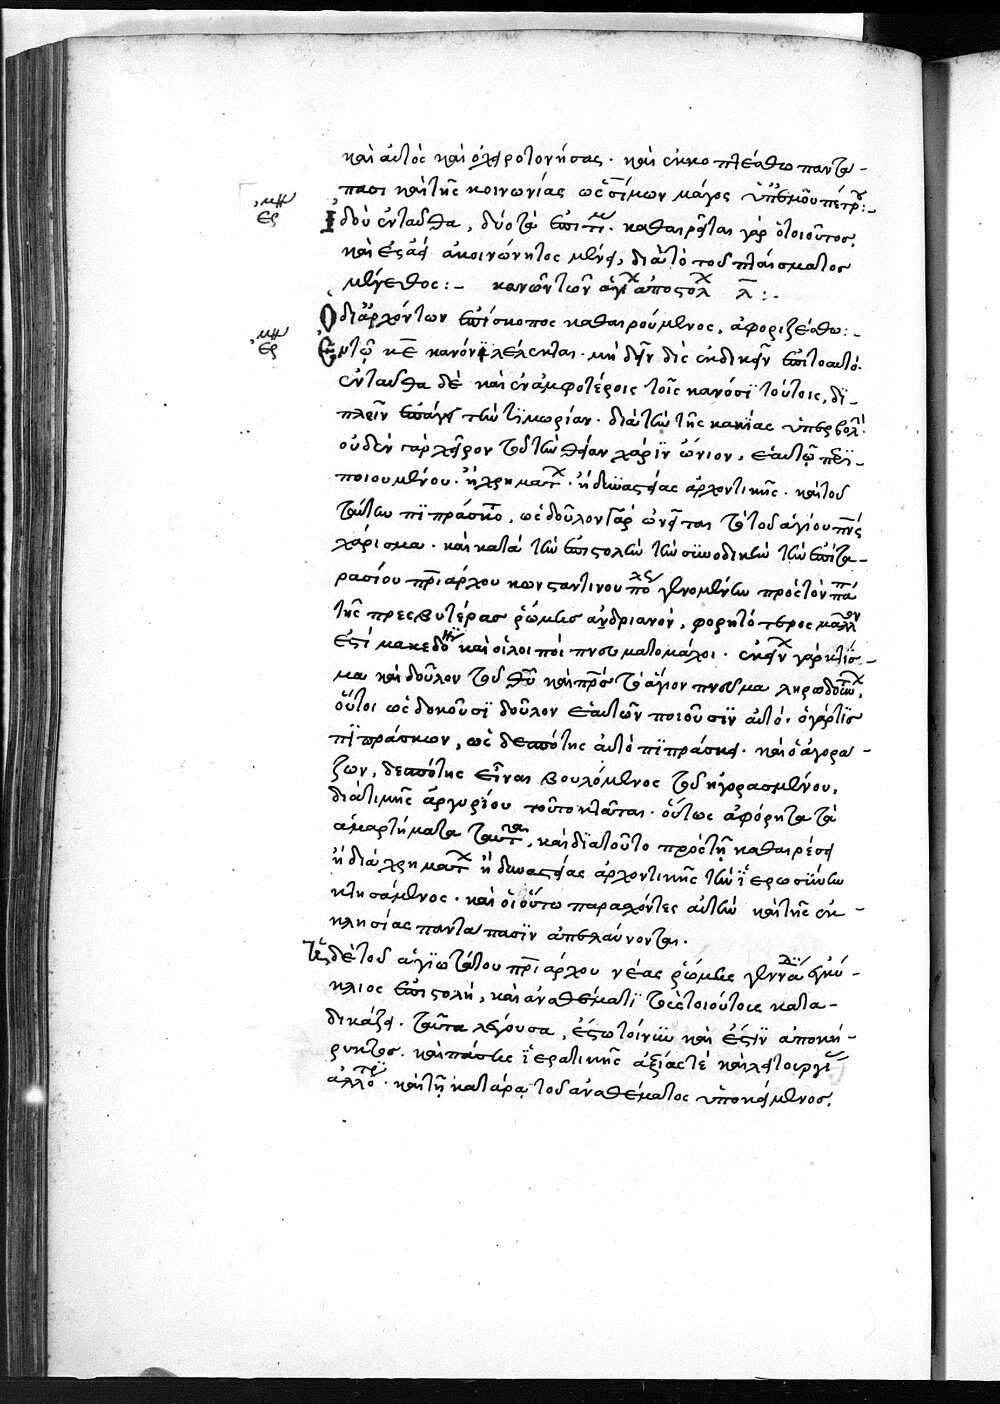 καὶ αὐτὸς καὶ ὁ χειροτονήσας· καὶ ἐκκοπτέσθω παντά-
πασι καὶ τῆς κοινωνίας ὡς σίμων μάγος ὑπ' ἐμοῦ πέτρου:-
ἑρμη
Ἰδοὺ ἐνταῦθα, δύο τὰ ἐπιτίμ. καθαιρεῖται γὰρ ὁ τοιοῦτος,
καὶ εἰς ἀεὶ ἀκοινώνητος μένει, διὰ τὸ τοῦ πταίσματος
μέγεθος:- κανὼν τῶν ἁγί ἀποστόλ λ:-
Ὁ διἀρχόντων ἐπίσκοπος καθαιρούμενος, ἀφοριζέσθω:-
ἑρμη
Ἐν τῷ κε κανόνι λέλεκται· μὴ δεῖν δὶς ἐκδικεῖν ἐπιτοαυτό·
ἐνταῦθα δὲ καὶ ἐν ἀμφοτέροις τοῖς κανόσι τούτοις, δι-
πλῆν ἐπάγει τὴν τιμωρίαν· διὰ τὴν τῆς κακίας ὑπερβολ.
οὐδὲν γὰρ χεῖρον τοῦ τὴν θείαν χάριν ὤνιον, ἑαυτῷ περι-
ποιουμένου· ἢ χρημάτ· ἢ δυναστείας ἀρχοντικῆς· καὶ τοῦ
ταύτην πιπράσκο, ὡς δοῦλον γὰρ ὠνεῖται τὸ τοῦ ἁγίου πνς
χάρισμα· καὶ κατὰ τὴν ἐπιστολὴν τὴν συνοδικὴν τὴν ἐπὶ τα-
ρασίου πριάρχου κωνσταντινουπό γενομένην πρὸς τὸν πά
τῆς πρεσβυτέρας ῥώμης ἀνδριανόν, φορητότερος μᾶλλον
ἐστὶ μακεδό καὶ οἱ λοιποὶ πνευματομάχοι· ἐκεῖν γὰρ κτίσ-
μα καὶ δοῦλον τοῦ θυ καὶ πρς τὸ ἅγιον πνεῦμα ληρωδοῦν,
οὗτοι ὡς δοκοῦσι δοῦλον ἑαυτῶν ποιοῦσιν αὐτό· ὁ γάρ τις
πιπράσκων, ὡς δεσπότης αὐτὸ πιπράσκει· καὶ ὁ ἀγορά-
ζων, δεσπότης εἶναι βουλόμενος τοῦ ἠγορασμένου,
διὰ τιμῆς ἀργυρίου τοῦτο κτᾶται· οὕτως ἀφόρητα τὰ
ἁμαρτήματα ταῦτ, καὶ διατοῦτο πρὸς τῇ καθαιρέσει
ἡ διὰ χρημάτ ἢ δυναστείας ἀρχοντικῆς τὴν ἱερωσύνην
κτησάμενος· καὶ οἱ οὕτω παρασχόντες αὐτὴν καὶ τῆς ἐκ-
κλησίας παντάπασιν ἀπελαύνονται.
Ἡ δὲ τοῦ ἁγιωτάτου πριάρχου νέας ῥώμης γεννα ἐγκύ-
κλιος ἐπιστολή, καὶ ἀναθέματι τοὺς τοιούτους κατα-
δικάζει· ταῦτα λέγουσα, ἔστω τοίνυν καὶ ἔστιν ἀποκή-
ρυκτος· καὶ πάσης ἱερατικῆς ἀξίας τὲ καὶ λειτουργί
ἀλλότρ· καὶ τῇ κατάρα τοῦ ἀναθέματος ὑποκείμενος,